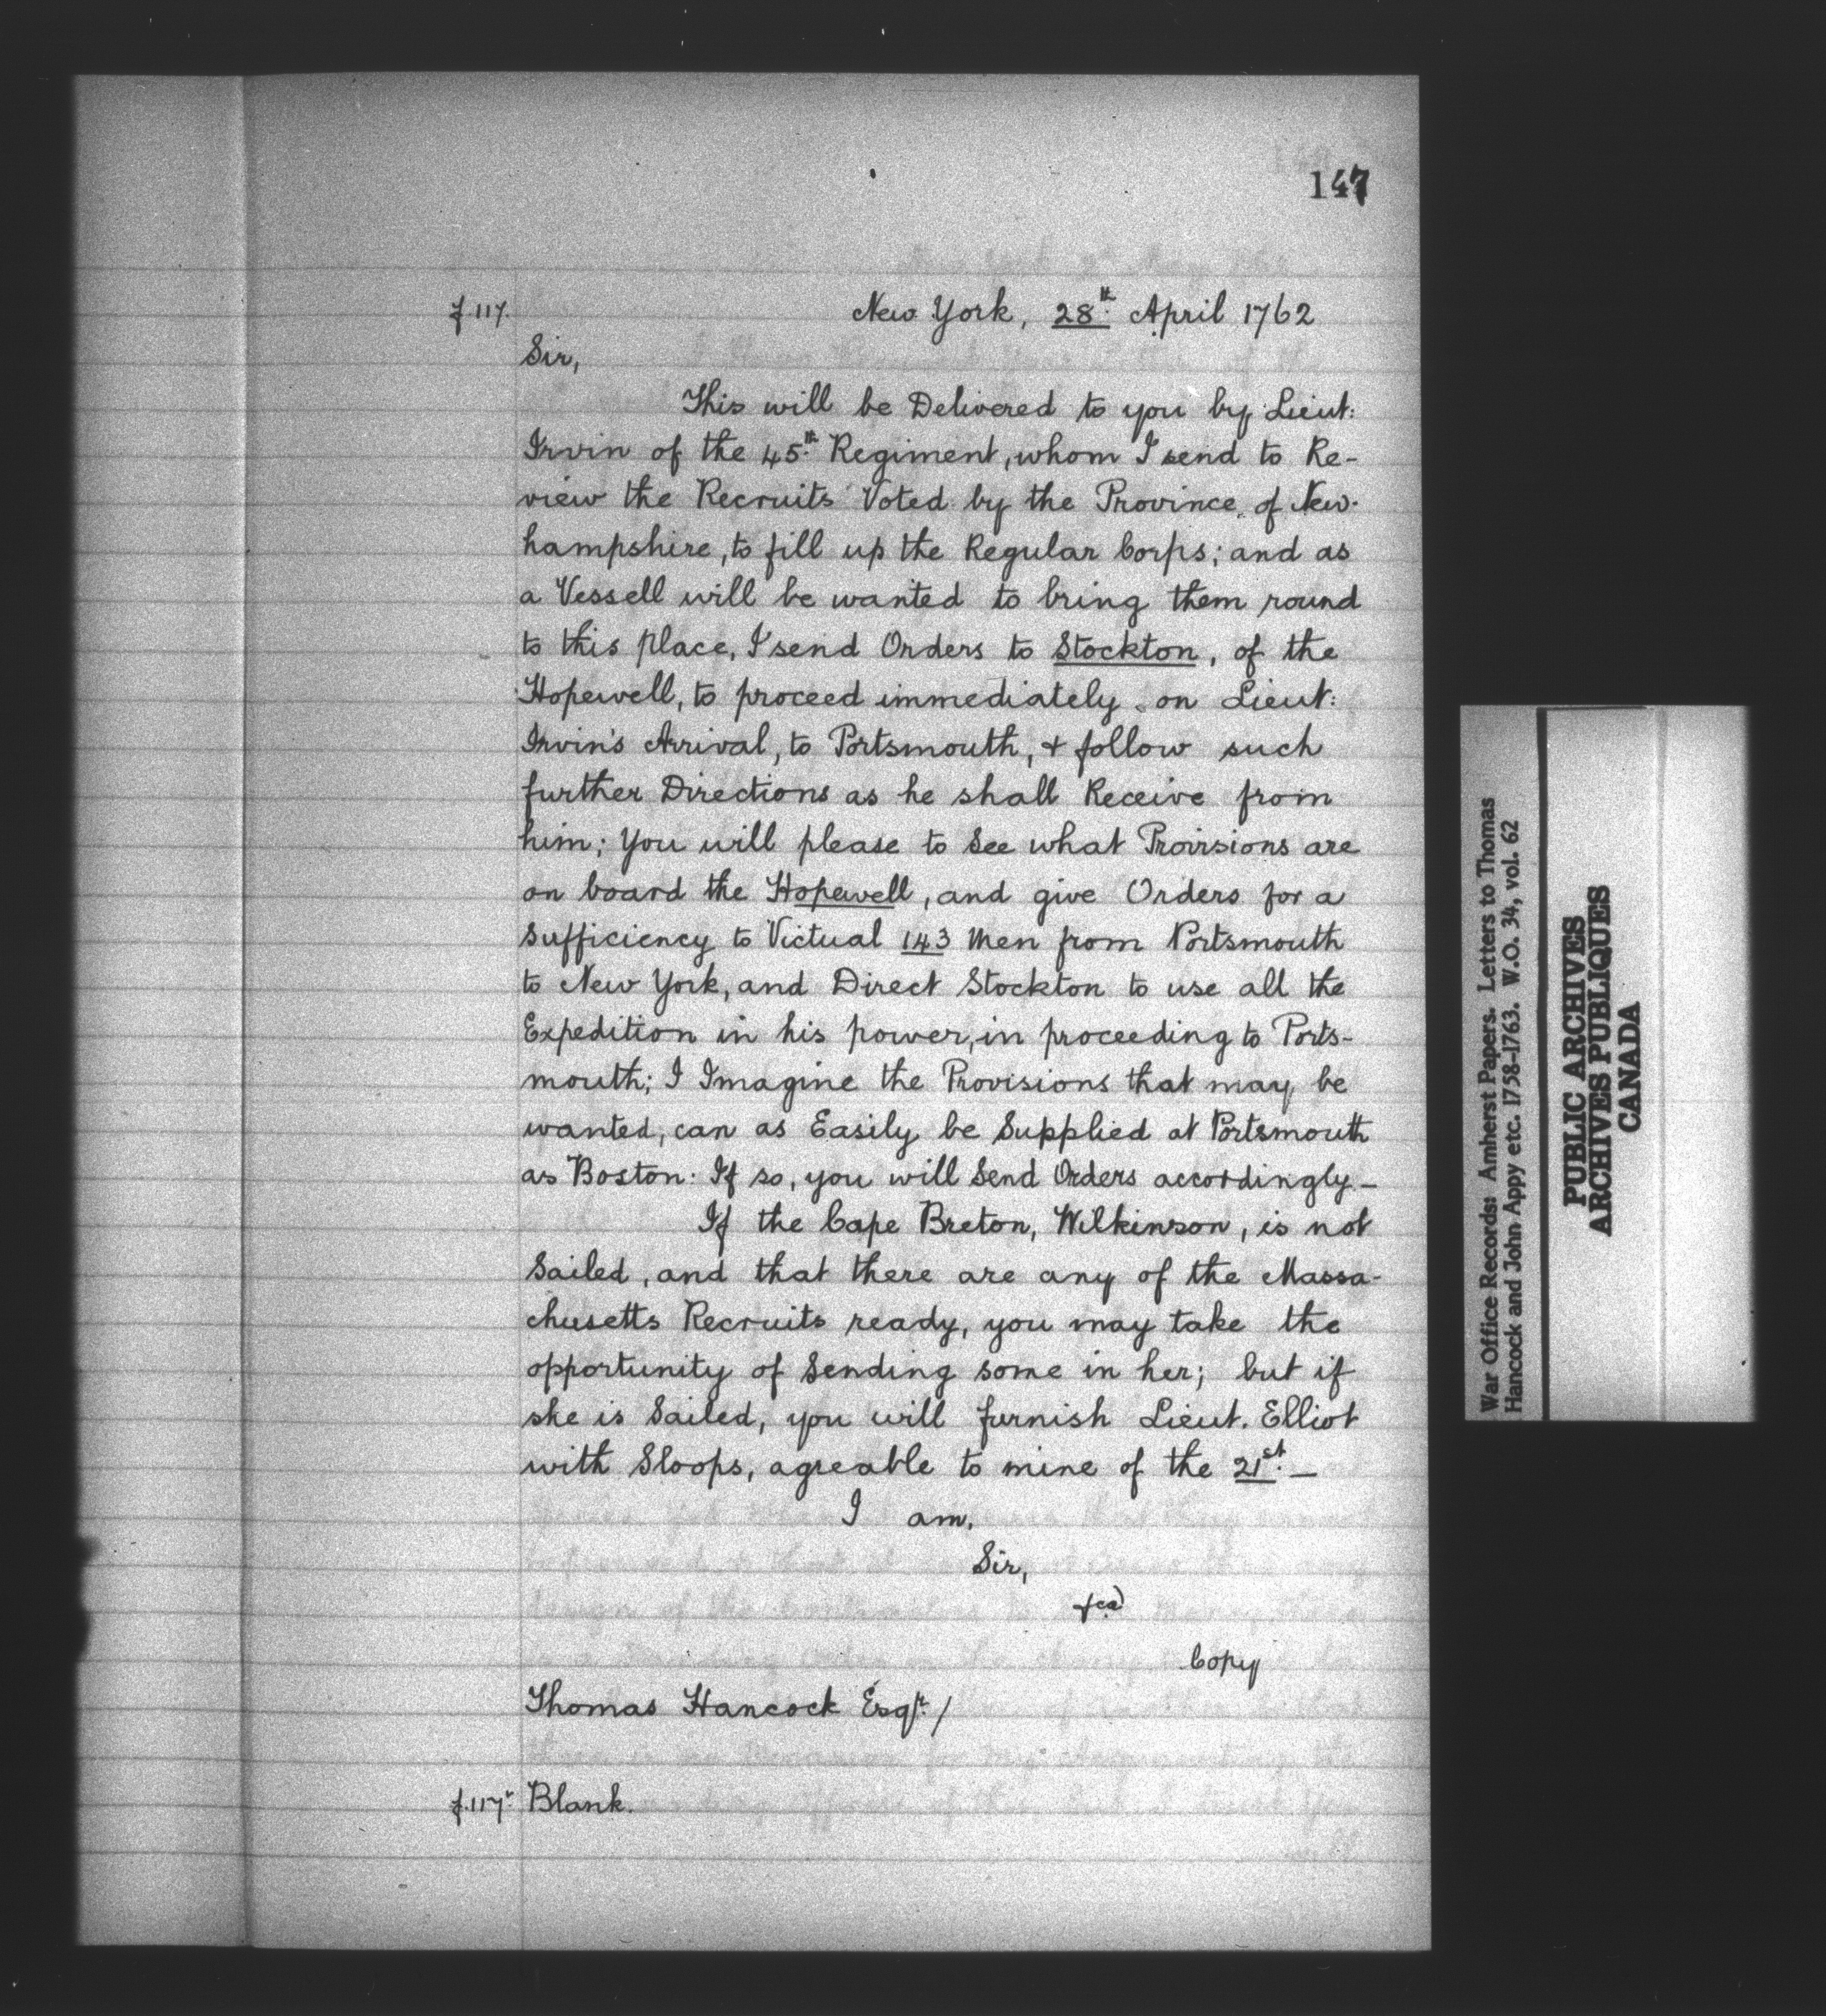 147
f.117.
New York, 28th. April 1762
Sir,
This will be Delivered to you by Lieut:
Irvin of the 45th. Regiment, whom I send to Re-
view the Recruits Voted by the Province of New-
hampshire, to fill up the Regular Corps; and as
a Vessell will be wanted to bring them round
to this place, I send Orders to Stockton, of the
Hopewell, to proceed immediately on Lieut:
Irvin's Arrival, to Portsmouth, & follow such
further Directions as he shall Receive from
him; You will please to See what Provisions are
on board the Hopewell, and give Orders for a
Sufficiency to Victual 143 Men from Portsmouth
to New York, and Direct Stockton to use all the
Expedition in his power, in proceeding to Ports-
mouth; I Imagine the Provisions that may be
wanted, can as Easily be Supplied at Portsmouth
as Boston: If so, you will Send Orders accordingly.-
If the Cape Breton, Wilkinson, is not
Sailed, and that there are any of the Massa-
chusetts Recruits ready, you may take the
opportunity of Sending some in her; but if
she is Sailed, you will furnish Lieut. Elliot
with Sloops, agreable to mine of the 21st.-
I am,
Sir,
&ca)
Copy
Thomas Hancock Esqr. /
f.117v. Blank.
War Office Records: Amherst Papers. Letters to Thomas
Hancock and John Appy etc. 1758-1763. W.O. 34, vol. 62
PUBLIC ARCHIVES
ARCHIVES PUBLIQUES
CANADA